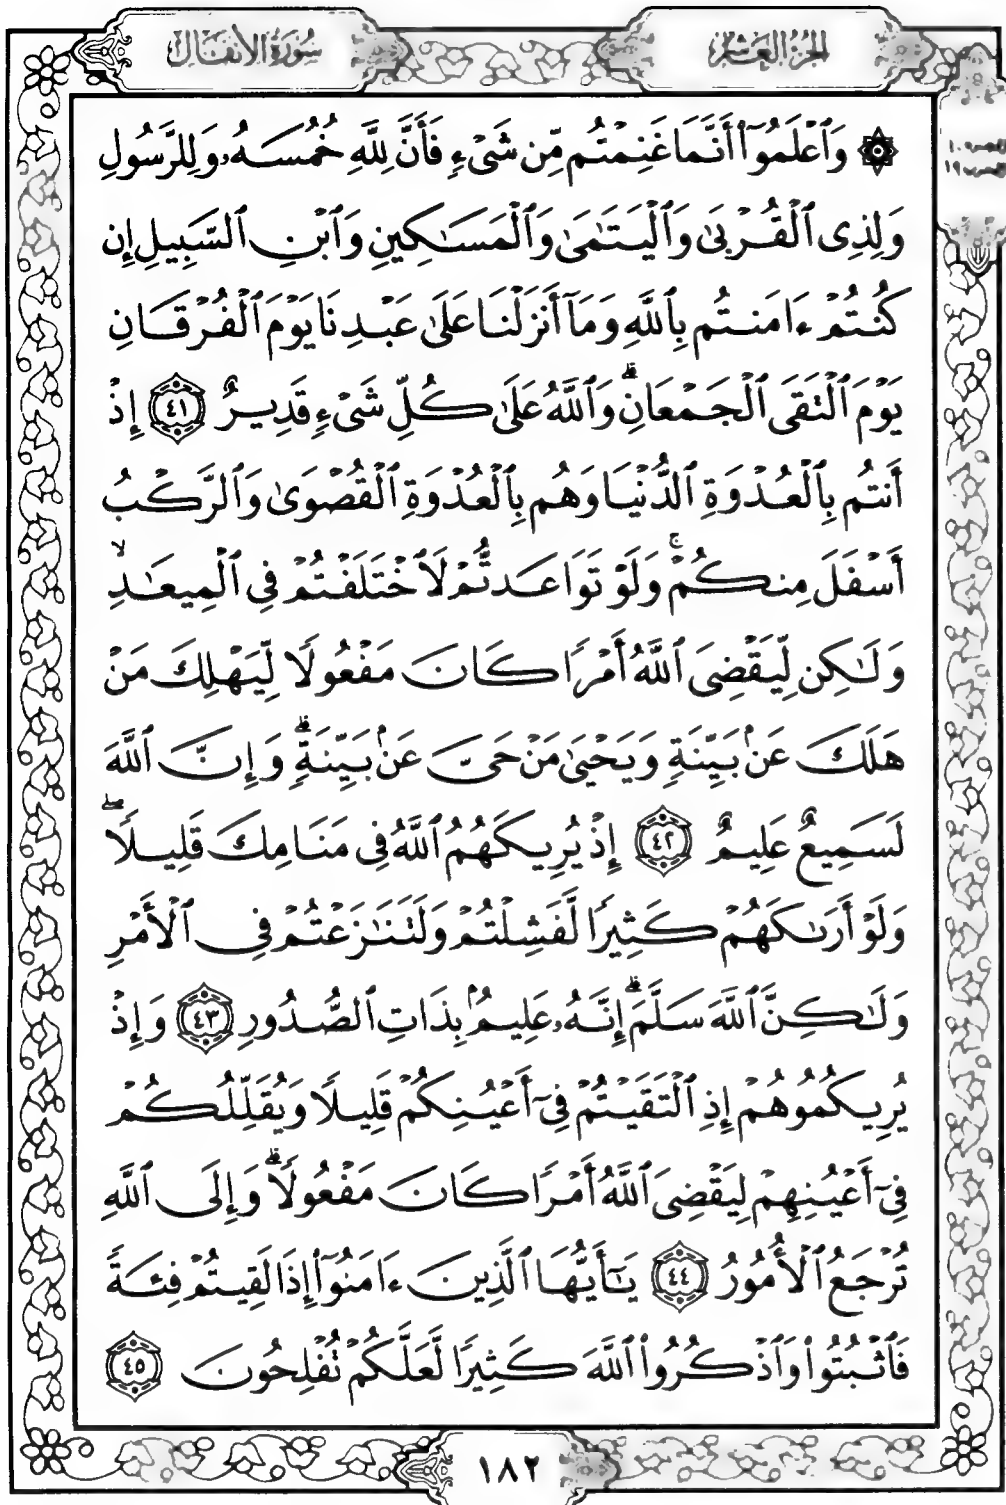 سُورَةُ الأَنفَالِ
الجُزْءُ العَاشِرُ
۞ وَٱعْلَمُوٓا۟ أَنَّمَا غَنِمْتُم مِّن شَىْءٍ فَأَنَّ لِلَّهِ خُمُسَهُۥ وَلِلرَّسُولِ
وَلِذِى ٱلْقُرْبَىٰ وَٱلْيَتَٰمَىٰ وَٱلْمَسَٰكِينِ وَٱبْنِ ٱلسَّبِيلِ إِن
كُنتُمْ ءَامَنتُم بِٱللَّهِ وَمَآ أَنزَلْنَا عَلَىٰ عَبْدِنَا يَوْمَ ٱلْفُرْقَانِ
يَوْمَ ٱلْتَقَى ٱلْجَمْعَانِ ۗ وَٱللَّهُ عَلَىٰ كُلِّ شَىْءٍ قَدِيرٌ ٤١ إِذْ
أَنتُم بِٱلْعُدْوَةِ ٱلدُّنْيَا وَهُم بِٱلْعُدْوَةِ ٱلْقُصْوَىٰ وَٱلرَّكْبُ
أَسْفَلَ مِنكُمْ ۚ وَلَوْ تَوَاعَدتُّمْ لَٱخْتَلَفْتُمْ فِى ٱلْمِيعَٰدِ ۙ
وَلَٰكِن لِّيَقْضِىَ ٱللَّهُ أَمْرًا كَانَ مَفْعُولًا لِّيَهْلِكَ مَنْ
هَلَكَ عَنۢ بَيِّنَةٍ وَيَحْيَىٰ مَنْ حَىَّ عَنۢ بَيِّنَةٍ ۗ وَإِنَّ ٱللَّهَ
لَسَمِيعٌ عَلِيمٌ ٤٢ إِذْ يُرِيكَهُمُ ٱللَّهُ فِى مَنَامِكَ قَلِيلًا ۖ
وَلَوْ أَرَىٰكَهُمْ كَثِيرًا لَّفَشِلْتُمْ وَلَتَنَٰزَعْتُمْ فِى ٱلْأَمْرِ
وَلَٰكِنَّ ٱللَّهَ سَلَّمَ ۗ إِنَّهُۥ عَلِيمٌۢ بِذَاتِ ٱلصُّدُورِ ٤٣ وَإِذْ
يُرِيكُمُوهُمْ إِذِ ٱلْتَقَيْتُمْ فِىٓ أَعْيُنِكُمْ قَلِيلًا وَيُقَلِّلُكُمْ
فِىٓ أَعْيُنِهِمْ لِيَقْضِىَ ٱللَّهُ أَمْرًا كَانَ مَفْعُولًا ۗ وَإِلَى ٱللَّهِ
تُرْجَعُ ٱلْأُمُورُ ٤٤ يَٰٓأَيُّهَا ٱلَّذِينَ ءَامَنُوٓا۟ إِذَا لَقِيتُمْ فِئَةً
فَٱثْبُتُوا۟ وَٱذْكُرُوا۟ ٱللَّهَ كَثِيرًا لَّعَلَّكُمْ تُفْلِحُونَ ٤٥
١٨٢